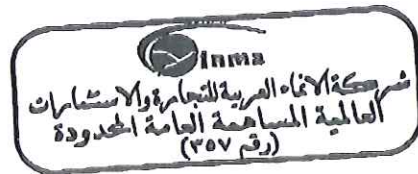 inma
شركة الانماء العربية للتجارة والاستشارات
العالمية المساهمة العامة المحدودة
(رقم ٣٥٧)